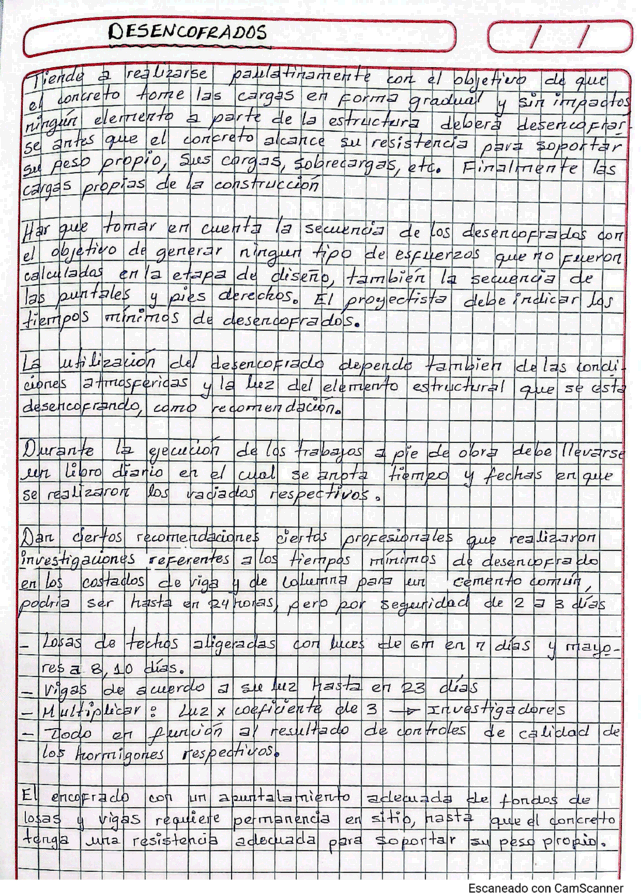 DESENCOFRADOS
/ /
Tiende a realizarse paulatinamente con el objetivo de que
el concreto tome las cargas en forma gradual y sin impactos
ningún elemento a parte de la estructura deberá desencofrar
se antes que el concreto alcance su resistencia para soportar
su peso propio, sus cargas, sobrecargas, etc. Finalmente las
cargas propias de la construcción
Hay que tomar en cuenta la secuencia de los desencofrados con
el objetivo de generar ningun tipo de esfuerzos que no fueron
calculados en la etapa de diseño, también la secuencia de
las puntales y pies derechos. El proyectista debe indicar los
tiempos mínimos de desencofrados.
La utilización del desencofrado depende tambien de las condi-
ciones atmosféricas y la luz del elemento estructural que se está
desencofrando, como recomendación.
Durante la ejecución de los trabajos a pie de obra debe llevarse
un libro diario en el cual se anota tiempo y fechas en que
se realizaron los vaciados respectivos.
Dan ciertos recomendaciones ciertos profesionales que realizaron
investigaciones referentes a los tiempos mínimos de desencofrado
en los costados de viga y de columna para un cemento común,
podria ser hasta en 24 horas, pero por seguridad de 2 a 3 días
- Losas de techos aligeradas con luces de 6m en 7 días y mayo-
res a 8, 10 días.
- Vigas de acuerdo a su luz hasta en 23 días
- Multiplicar: Luz x coeficiente de 3 → Investigadores
- Todo en función al resultado de controles de calidad de
los hormigones respectivos.
El encofrado con un apuntalamiento adecuada de fondos de
losas y vigas requiere permanencia en sitio, hasta que el concreto
tenga una resistencia adecuada para soportar su peso propio.
Escaneado con CamScanner